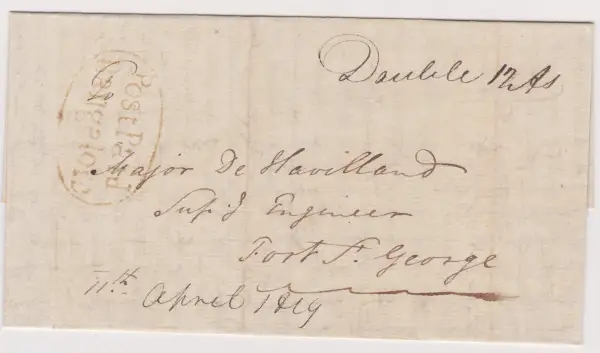 Double 12 As
Post Paid
Bangalore
To
Major De Havilland
Supg Engineer
Fort St. George
11th April 1819